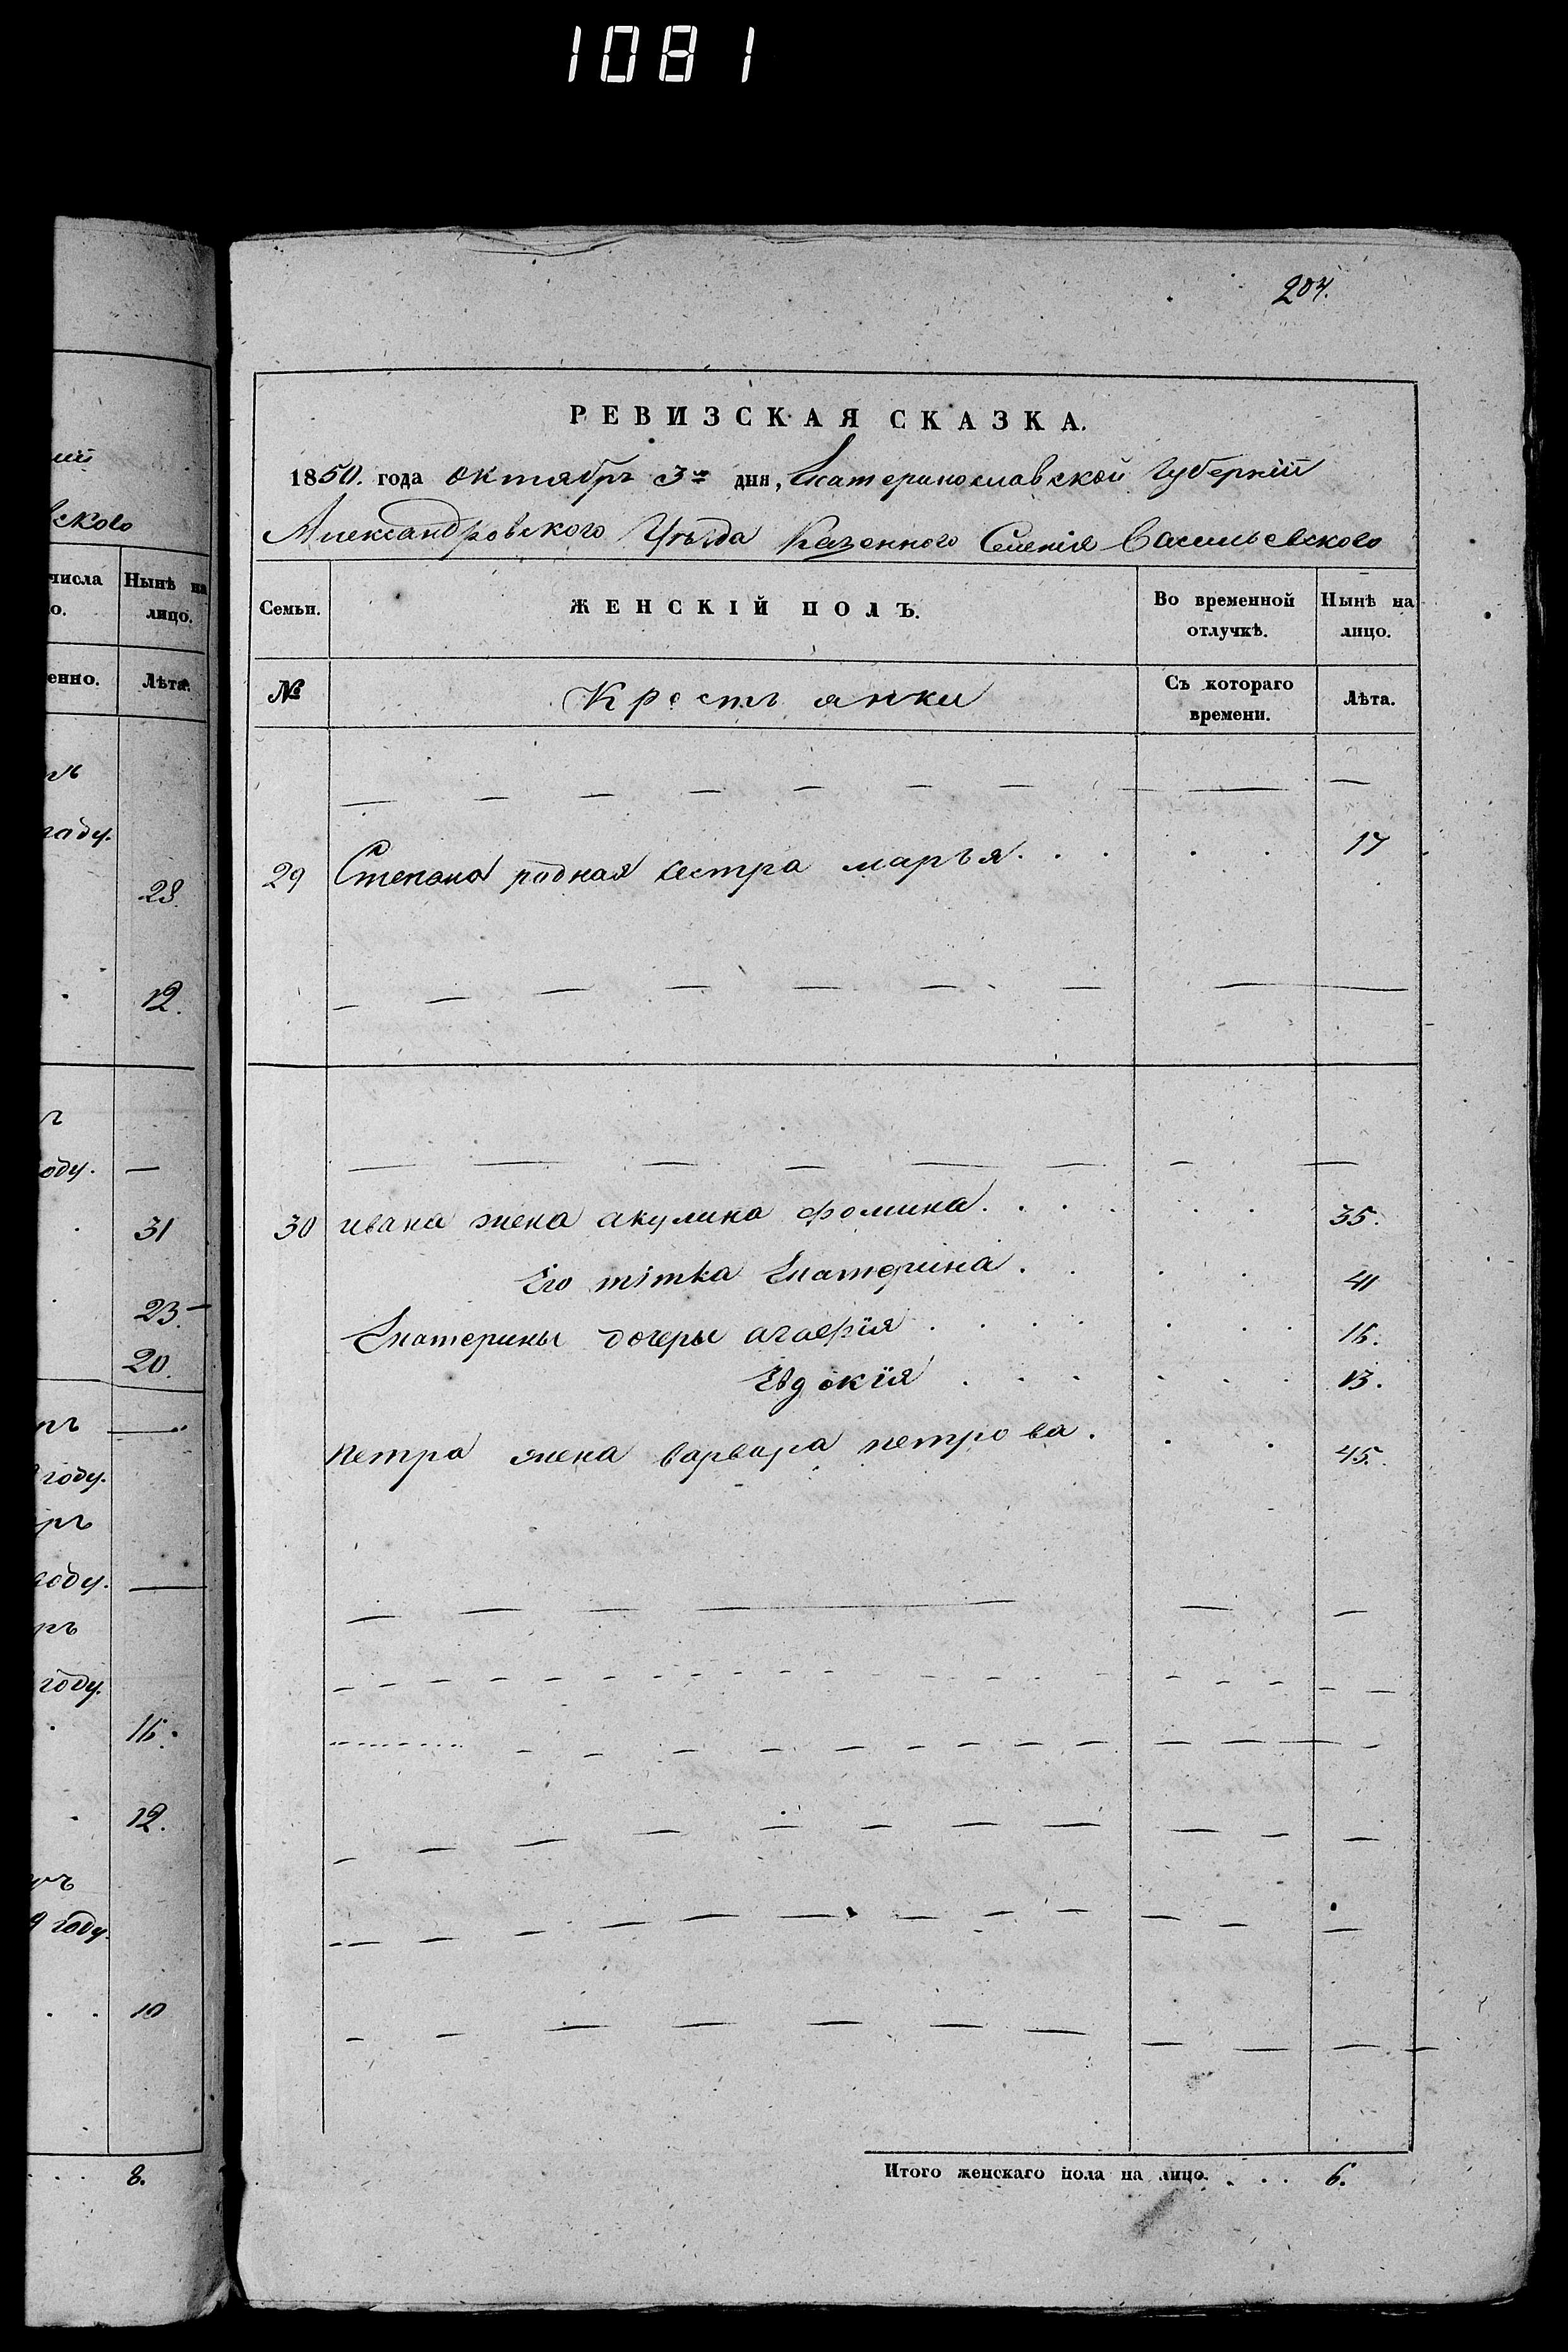 1081
ий
вского
числа Нынѣ на
о. лицо.
енно. Лѣта.
году.
28.
12.
оду. —
31
23.
20.
году.
году.
году.
16.
12.
9 году.
10
8.
204.
РЕВИЗСКАЯ СКАЗКА.
1850. года октябръ 3го дня, Екатеринославской Губерніи
Александровского Уѣзда Казенного Селенія Васильевского
Семьи. ЖЕНСКІЙ ПОЛЪ. Во временной отлучкѣ. Нынѣ на лицо.
№ Крестьянки Съ котораго времени. Лѣта.
29 Степана родная сестра марья. 17
30 ивана жена акулина фомина. 35.
Его тітка Екатерина. 41
Екатерины дочеры агафія 16.
Евдокія 13.
петра жена варвара петрова. 45.
Итого женскаго пола на лицо. 6.